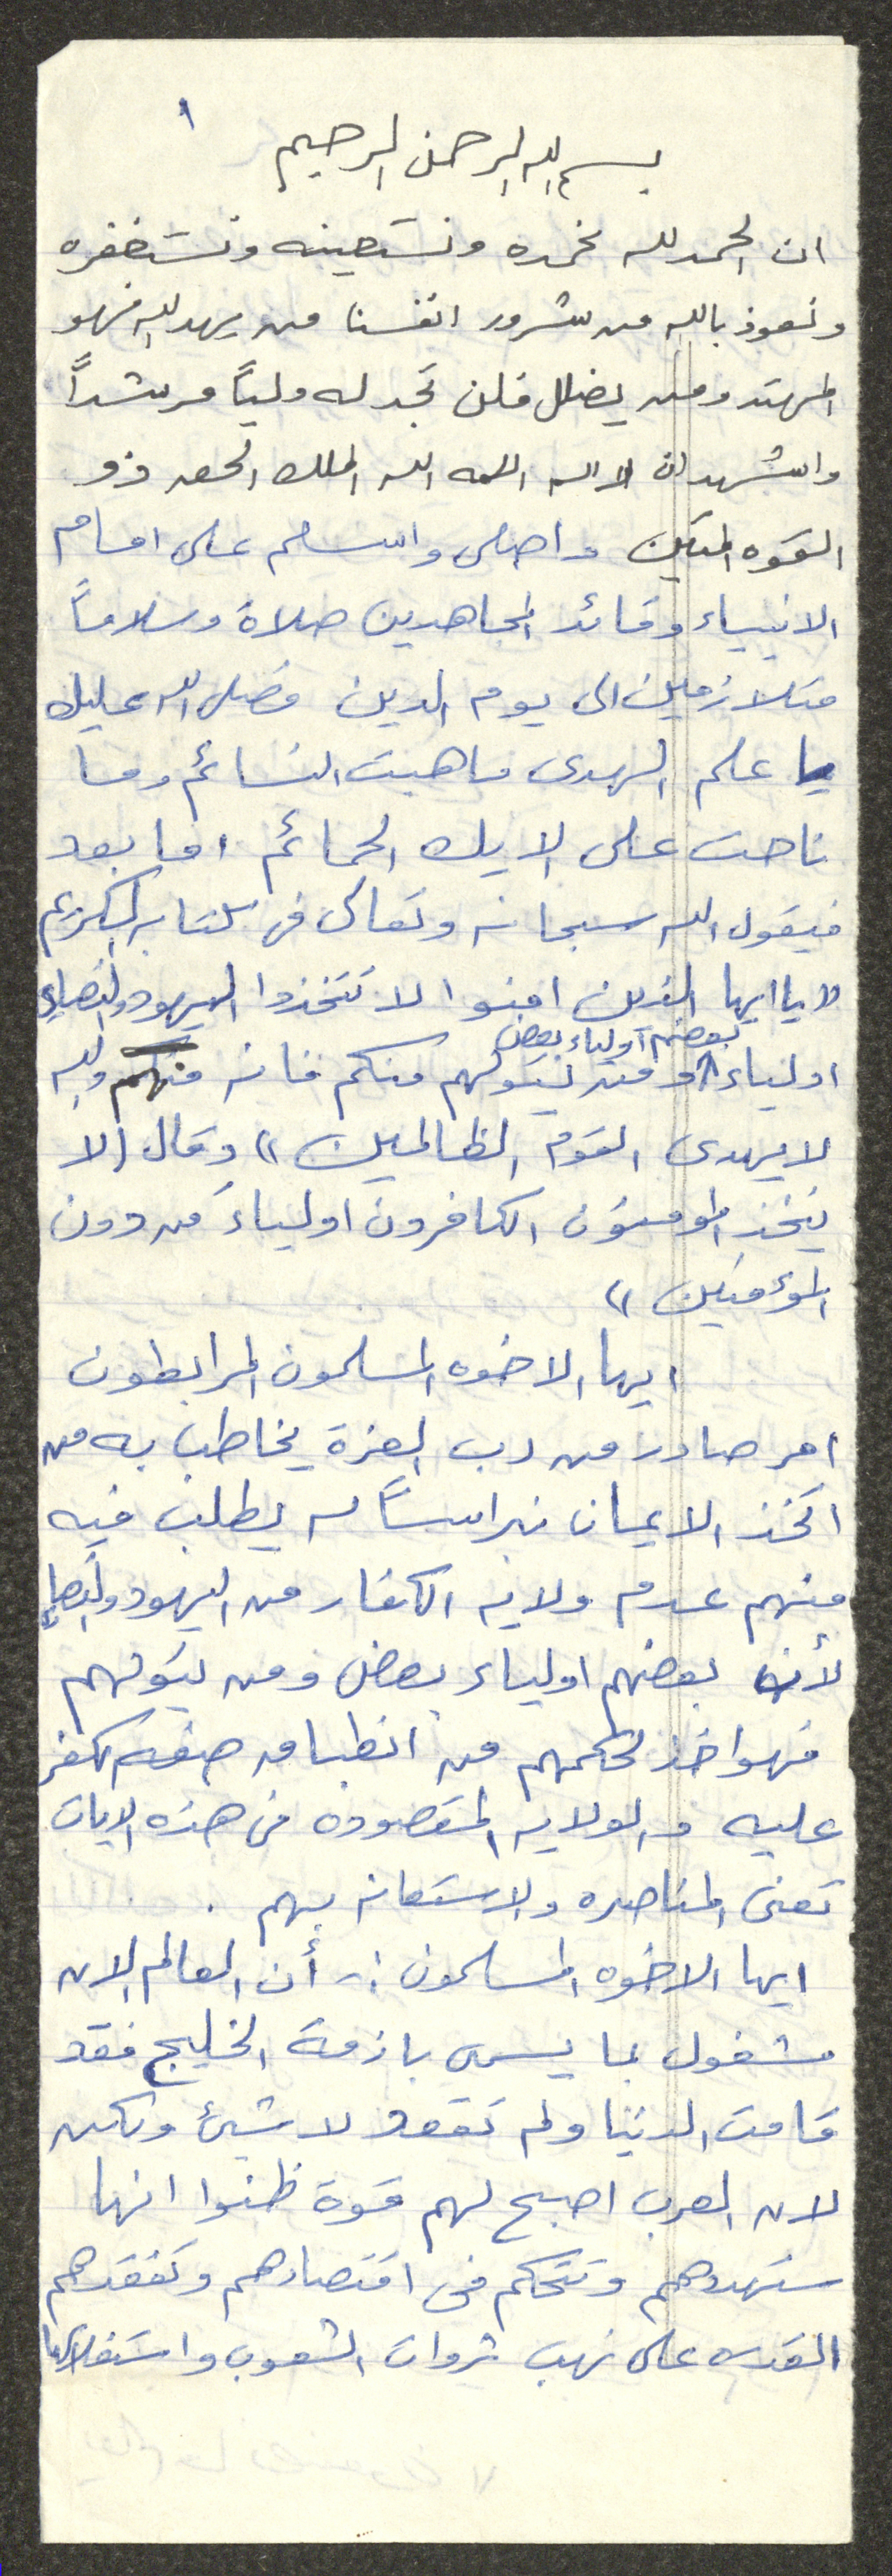 ١
بسم الله الرحمن الرحيم
ان الحمد لله نحمده ونستعينه ونستغفره
ونعوذ بالله من شرور انفسنا من يهد الله فهو
المهتد ومن يضلل فلن تجد له ولياً مرشداً
واشهد ان لا اله الا الله الملك الحق ذو
القوه المتين واصلى واسلم على امام
الانبياء وقائد المجاهدين صلاة وسلاماً
متلازمين الى يوم الدين فصلى الله عليك
يا علم الهدى ما هبت النسائم وما
ناحت على الايك الحمائم اما بعد
فيقول الله سبحانه وتعالى فى كتابه الكريم
" يا ايها الذين امنوا لا تتخذوا اليهود والنصارى
بعضهم أولياء بعض
اولياء ومن يتولهم منكم فانه منهم والله
لا يهدى القوم الظالمين " وقال ( لا
يتخذ المومنون الكافرون اولياءَ من دون
المؤمنين "
ايها الاخوه المسلمون المرابطون
امر صادر من رب العزة يخاطب به من
اتخذ الايمان نبراساً له يطلب فيه
منهم عدم ولايه الكفار من اليهود والنصارى
لأن بعضهم اولياء بعض ومن يتولهم
فهو اخذ لحكمهم من انطباق صفه الكفر
عليه والولايه المقصوده فى هذه الايات
تعنى المناصره والاستعانه بهم .
ايها الاخوه المسلمون :- أن العالم الان
مشغول بما يسمى بازمة الخليج فقد
قامت الدنيا ولم تقعد لا شيئ ولكن
لان العرب اصبح لهم قوة ظنوا انها
ستهددهم وتتحكم فى اقتصادهم وتفقدهم
القدره على نهب ثروات الشعوب واستغلالها